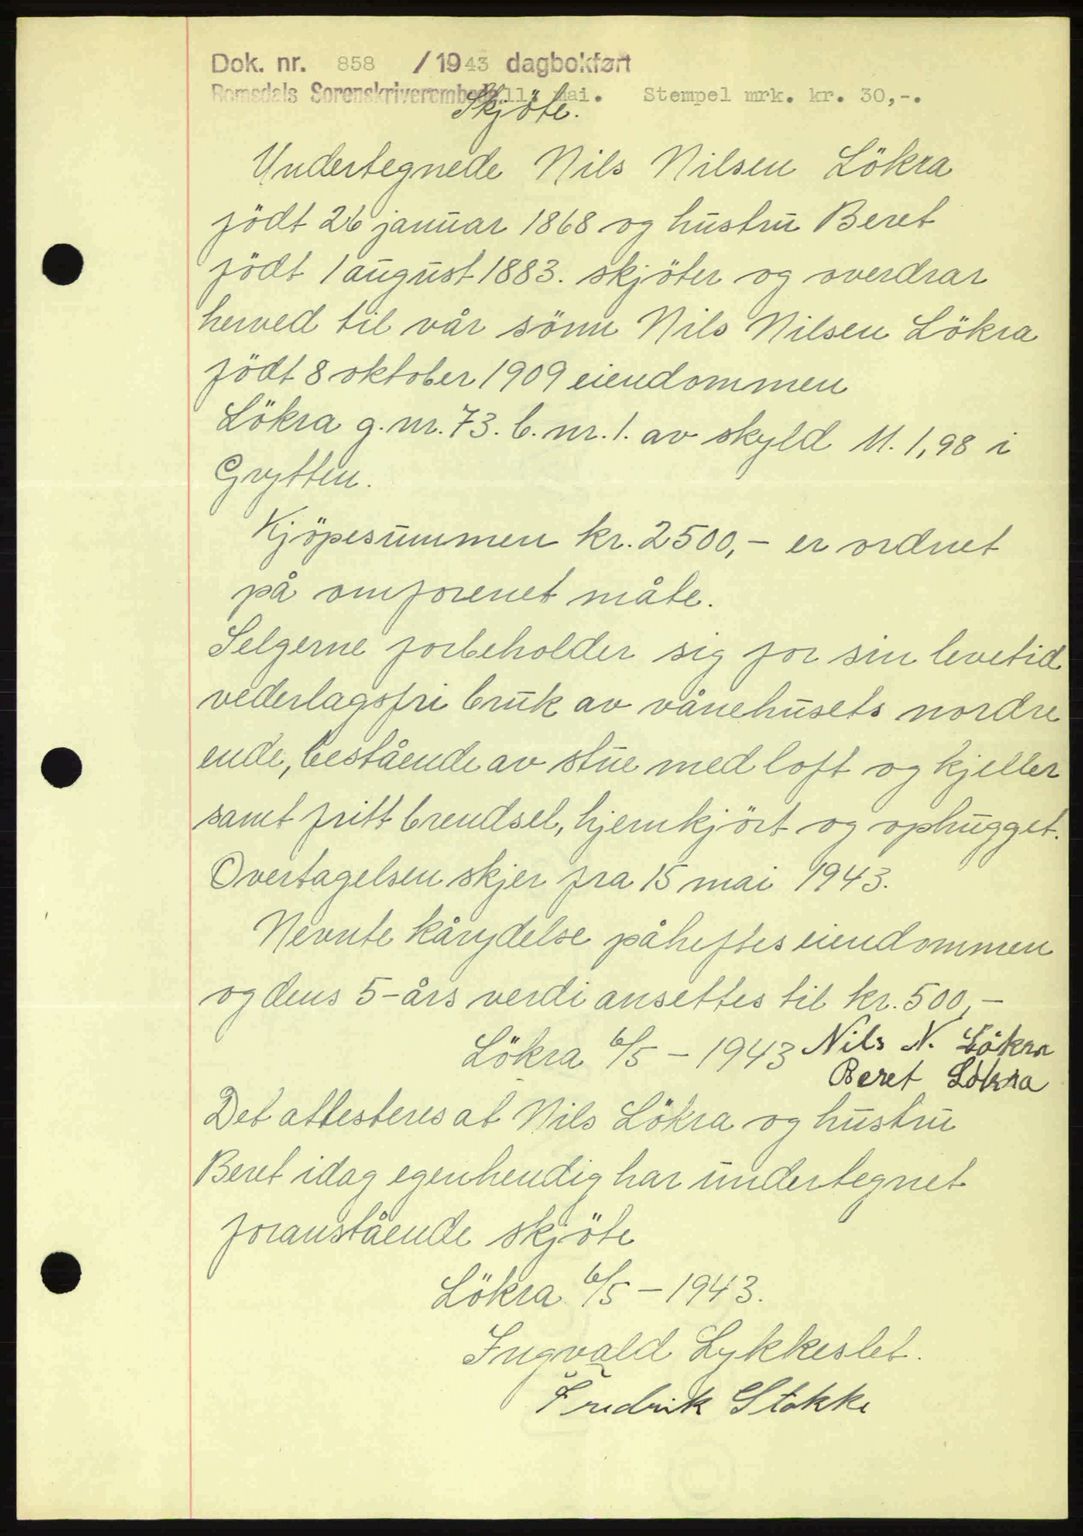 Dok. nr. 858 / 1943 dagbokført
Romsdals Sorenskriverembede 11. mai. Stempel mrk. kr. 30,-.
Skjöte.
Undertegnede Nils Nilsen Lökra
født 26 januar 1868 og hustru Beret
födt 1 august 1883. skjöter og overdrar
herved til vår sönn Nils Nilsen Lökra
födt 8 oktober 1909 eiendommen
Lökra g.nr. 73. b.nr. 1. av skyld M. 1,98 i
Grytten.
Kjöpesummen kr. 2500,- er ordnet
på omforenet måte.
Selgerne forbeholder sig for sin levetid
vederlagsfri bruk av vånehusets nordre
ende, bestående av stue med loft og kjeller
samt fritt brendsel, hjemkjört og ophugget.
Overtagelsen skjer fra 15 mai 1943.
Nevnte kårydelse påheftes eiendommen
og dens 5-års verdi ansettes til kr. 500,-
Lökra 6/5 - 1943 Nils N. Lökra
Beret Lökra
Det attesteres at Nils Lökra og hustru
Beret idag egenhendig har undertegnet
foranstående skjöte
Lökra 6/5 - 1943.
Ingvald Lykkeslet.
Fredrik Stokke